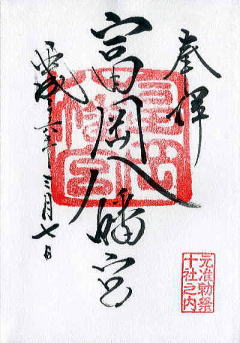 奉拝
富岡八幡宮
平成二十一年三月七日
元准勅祭
十社之内